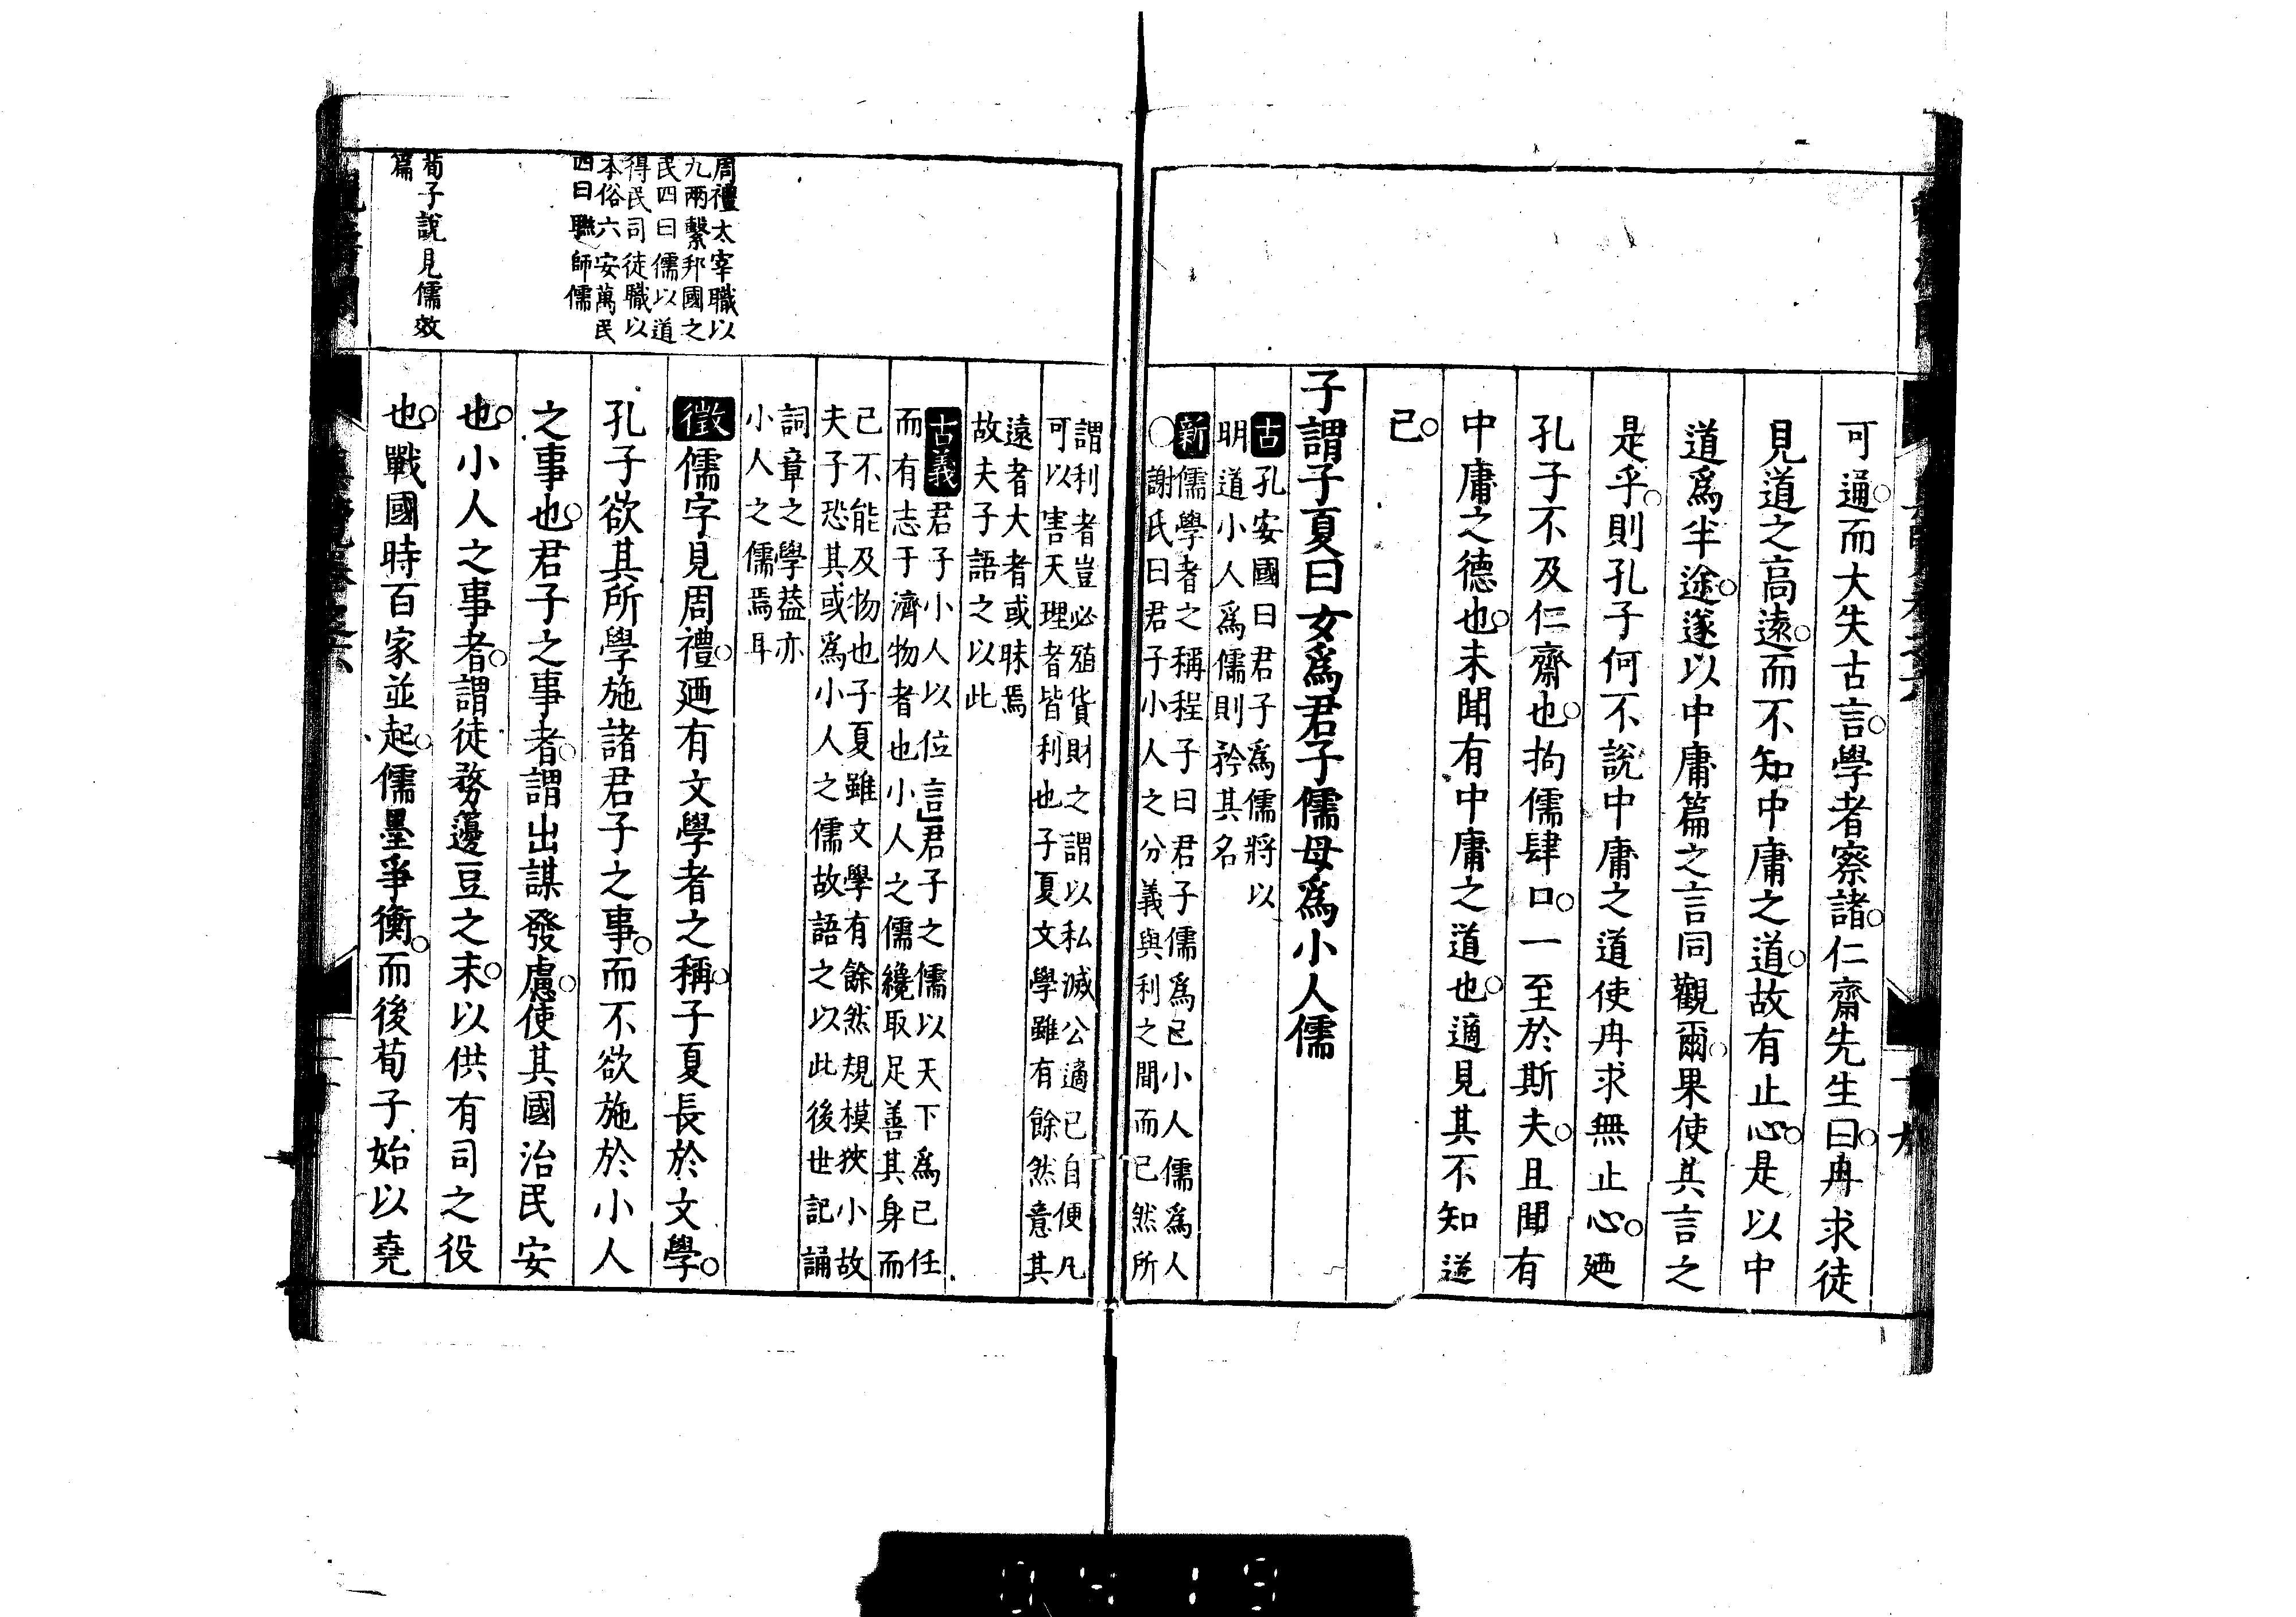 可通。而大失古言。學者察諸。仁齋先生曰。冉求徒
見道之高遠。而不知中庸之道。故有止心。是以中
道爲半途。遂以中庸篇之言同觀爾。果使其言之
是乎。則孔子何不說中庸之道使冉求無止心。廼
孔子不及仁齋也。拘儒肆口。一至於斯夫。且聞有
中庸之德也。未聞有中庸之道也。適見其不知道
已。
子謂子夏曰女爲君子儒母爲小人儒
古孔安國曰君子爲儒將以
明道小人爲儒則矜其名
新儒學者之稱程子曰君子儒爲已小人儒爲人
○謝氏曰君子小人之分義與利之間而已然所
謂利者豈必殖貨財之謂以私滅公適已自便凡
可以害天理者皆利也子夏文學雖有餘然意其
遠者大者或昧焉
故夫子語之以此
古義君子小人以位言君子之儒以天下爲已任
而有志于濟物者也小人之儒纔取足善其身而
已不能及物也子夏雖文學有餘然規模狹小故
夫子恐其或爲小人之儒故語之以此後世記誦
詞章之學葢亦
小人之儒焉耳
周禮太宰職以
九兩繫邦國之
民四曰儒以道
得民司徒職以
本俗六安萬民
四曰聯師儒
徵儒字見周禮。廼有文學者之稱。子夏長於文學。
孔子欲其所學施諸君子之事。而不欲施於小人
之事也。君子之事者。謂出謀發慮。使其國治民安
也。小人之事者。謂徒務籩豆之末。以供有司之役
荀子說見儒效
篇
也。戰國時百家並起。儒墨爭衡。而後荀子始以堯